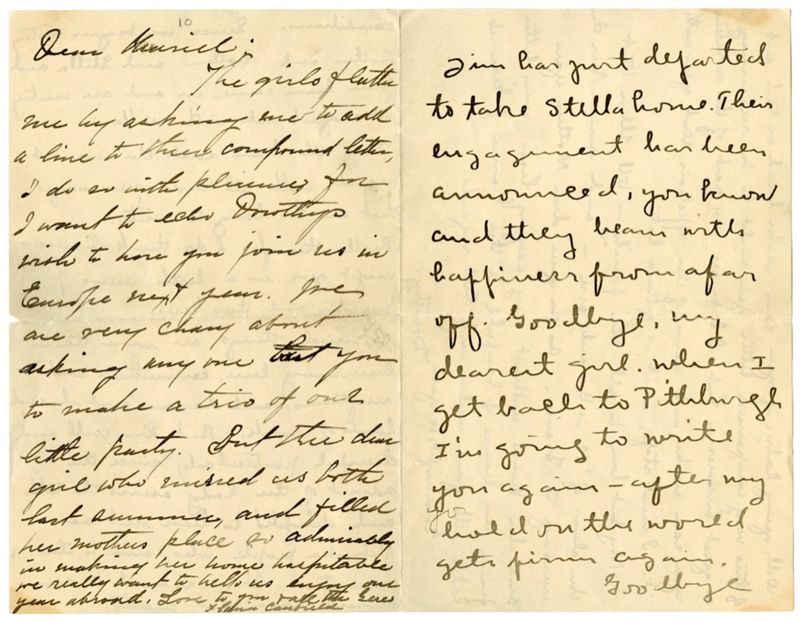 10
Dear Muriel:
The girls flatter
me by asking me to add
a line to their compound letter,
I do so with pleasure, for
I want to echo Dorothys
wish to have you join us in
Europe next year. We
are very chary about
asking any one but you
to make a trio of our
little party. But the dear
girl who nursed us both
last summer, and filled
her mothers place so admirably
in making her home hospitable
we really want to help us enjoy our
year abroad. Love to you and the
Canfield
Jim has just departed
to take Stella home. Their
engagement has been
announced, you know
and they beam with
happiness from afar
off. Goodbye, my
dearest girl. When I
get back to Pittsburgh
I'm going to write
you again – after my
hold on the world
gets firm again.
Goodbye